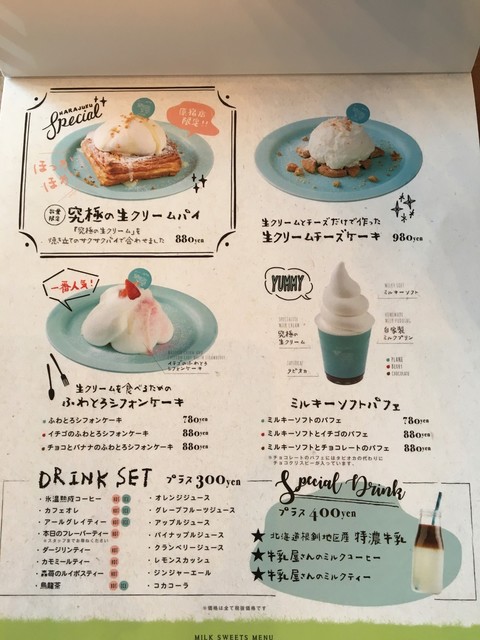 HARAJUKU
Special
原宿店
限定!!
ほっ
ほっ
数量
限定
究極の生クリームパイ
『究極の生クリーム』を
焼き立てのサクサクパイで合わせました 880yen
生クリームとチーズだけで作った
生クリームチーズケーキ 980yen
一番人気!
イチゴのふわとろ
シフォンケーキ
生クリームを食べるための
ふわとろシフォンケーキ
・ふわとろシフォンケーキ 780yen
・イチゴのふわとろシフォンケーキ 880yen
・チョコとバナナのふわとろシフォンケーキ 880yen
YUMMY
MILKY SOFT
ミルキーソフト
究極の
生クリーム
HOMEMADE
MILK PUDDING
自家製
ミルクプリン
TAPIOCA
タピオカ
PLANE
BERRY
CHOCOLATE
ミルキーソフトパフェ
・ミルキーソフトのパフェ 780yen
・ミルキーソフトとイチゴのパフェ 880yen
・ミルキーソフトとチョコレートのパフェ 880yen
※チョコレートのパフェにはタピオカの代わりに
チョコクリスピーが入っています。
DRINK SET プラス 300yen
・氷温熟成コーヒー
・カフェオレ
・アールグレイティー
・本日のフレーバーティー
※スタッフまでお尋ねください
・ダージリンティー
・カモミールティー
・烏龍茶
・オレンジジュース
・グレープフルーツジュース
・アップルジュース
・パイナップルジュース
・クランベリージュース
・レモンスカッシュ
・ジンジャーエール
・コカコーラ
Special Drink
プラス 400yen
★北海道根釧地区産 特濃牛乳
★牛乳屋さんのミルクコーヒー
★牛乳屋さんのミルクティー
※価格は全て税抜価格です
MILK SWEETS MENU